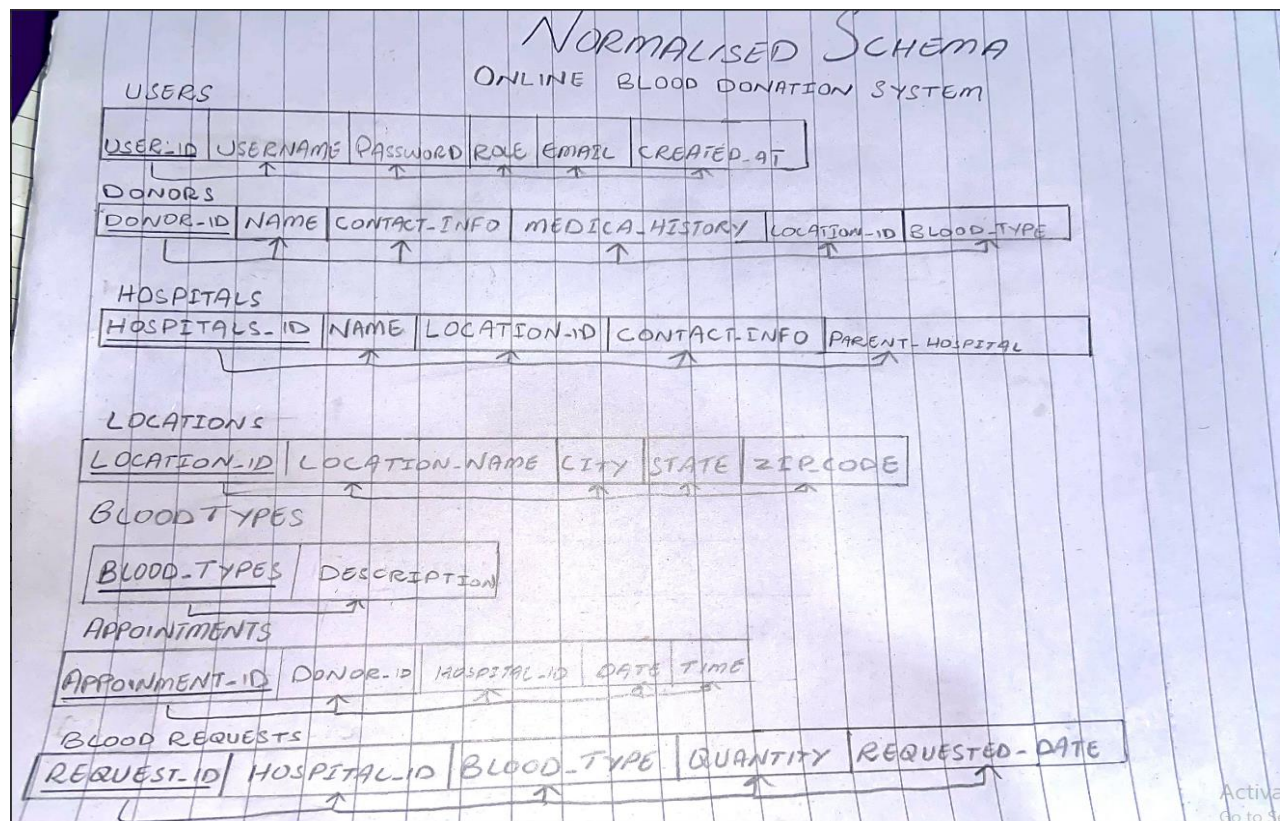 NORMALISED SCHEMA
ONLINE BLOOD DONATION SYSTEM
USERS
USER_ID USERNAME PASSWORD ROLE EMAIL CREATED_AT
DONORS
DONOR_ID NAME CONTACT_INFO MEDICA_HISTORY LOCATION_ID BLOOD_TYPE
HOSPITALS
HOSPITALS_ID NAME LOCATION_ID CONTACT_INFO PARENT_HOSPITAL
LOCATIONS
LOCATION_ID LOCATION_NAME CITY STATE ZIP_CODE
BLOOD TYPES
BLOOD_TYPES DESCRIPTION
APPOINTMENTS
APPOINMENT_ID DONOR_ID HOSPITAL_ID DATE TIME
BLOOD REQUESTS
REQUEST_ID HOSPITAL_ID BLOOD_TYPE QUANTITY REQUESTED_DATE
Activa
Go to S